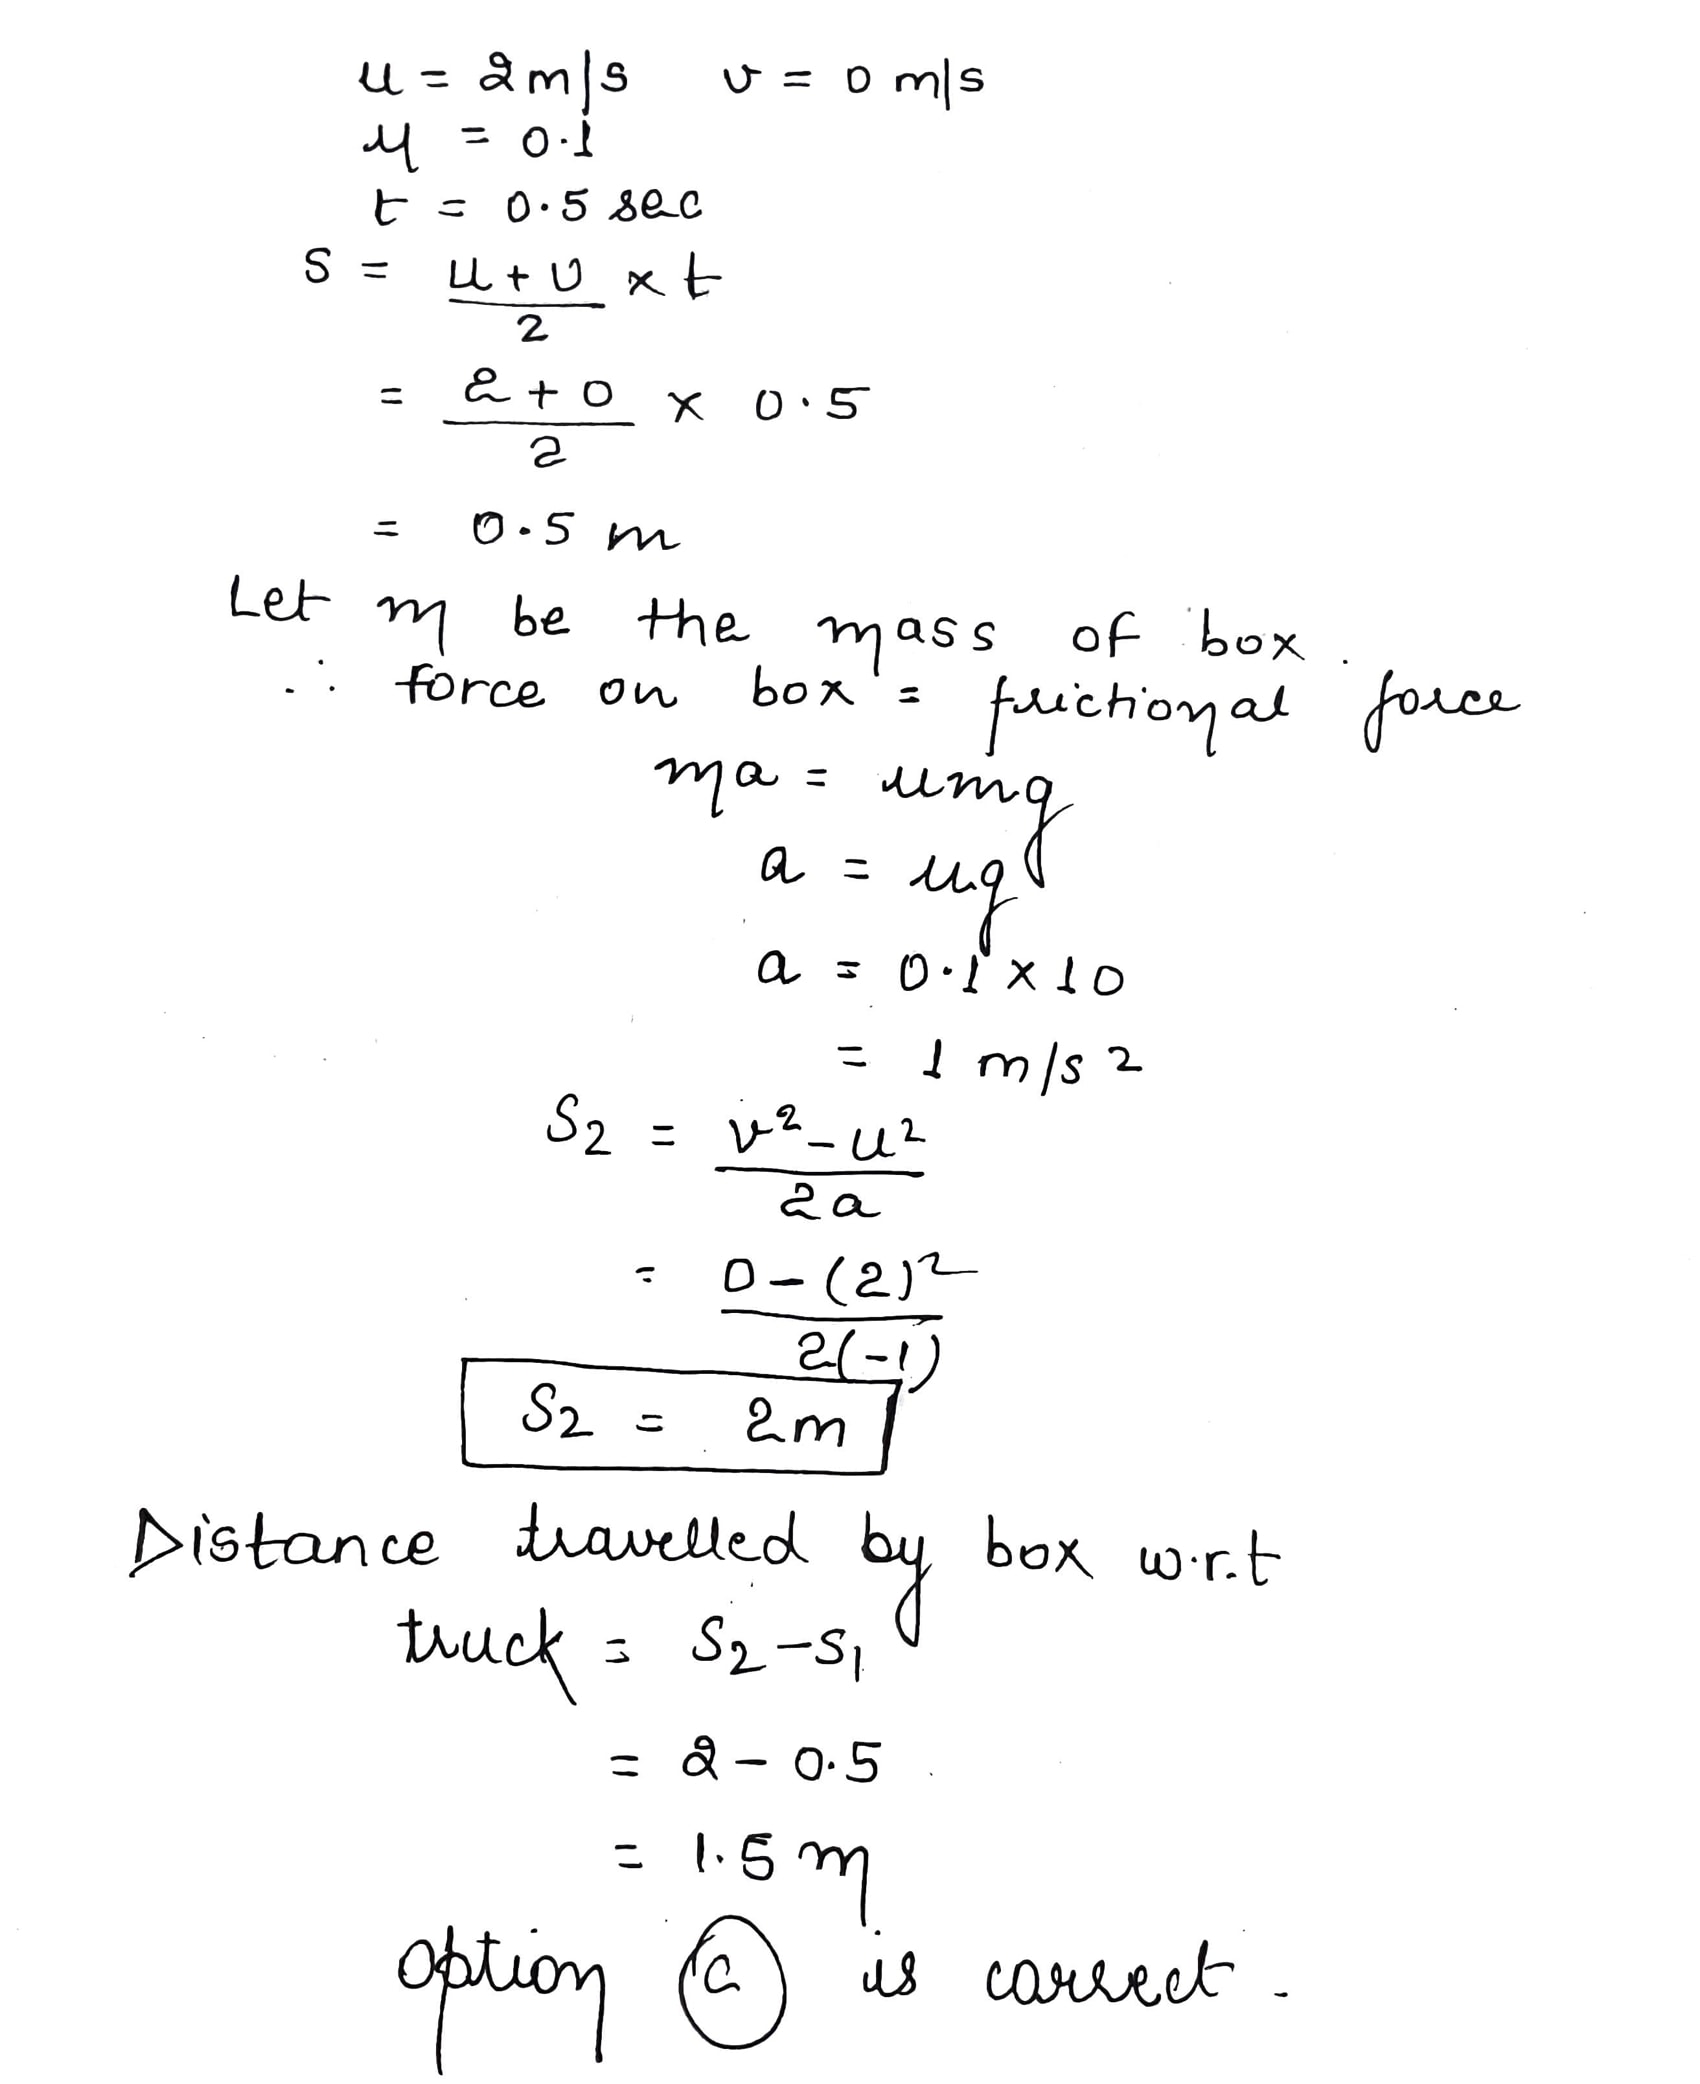 u = 2m/s v = 0 m/s
μ = 0.1
t = 0.5 sec
S = u+v/2 x t
= 2+0/2 x 0.5
= 0.5 m
Let m be the mass of box.
∴ force on box = frictional force
ma = μmg
a = μg
a = 0.1 x 10
= 1 m/s2
S2 = v²-u²/2a
= 0-(2)²/2(-1)
S2 = 2m
Distance travelled by box w.r.t
truck = S2-S1
= 2-0.5
= 1.5 m
option c is correct.